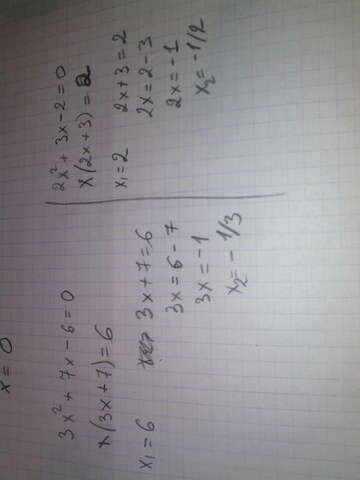 x = 0
3x² + 7x - 6 = 0
x(3x+7) = 6
x₁ = 6 3x + 7 = 6
3x = 6 - 7
3x = -1
x₂ = - 1/3
2x² + 3x - 2 = 0
x(2x+3) = 2
x₁ = 2 2x + 3 = 2
2x = 2 - 3
2x = -1
x₂ = -1/2